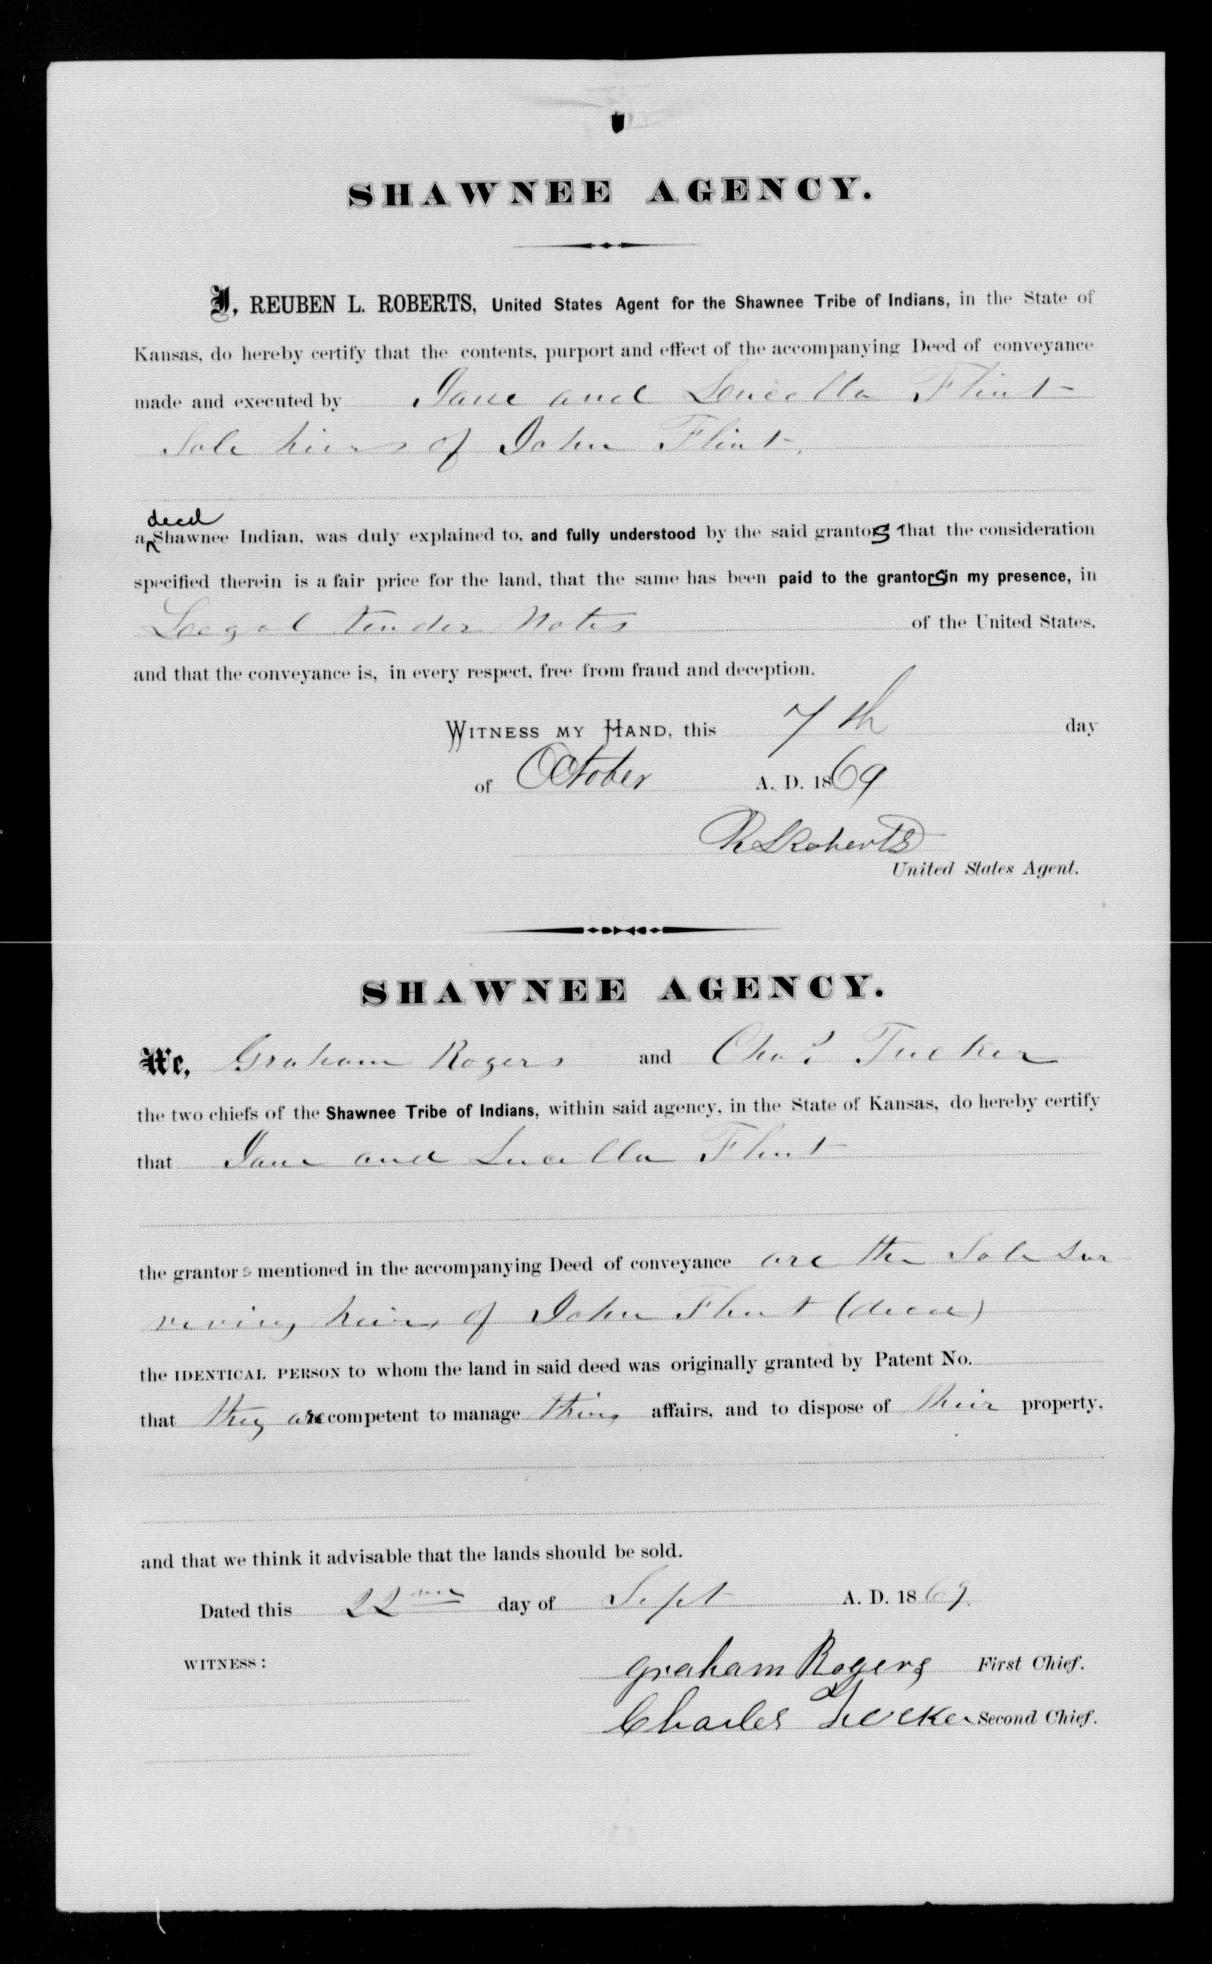 SHAWNEE AGENCY.
I, REUBEN L. ROBERTS, United States Agent for the Shawnee Tribe of Indians, in the State of
Kansas, do hereby certify that the contents, purport and effect of the accompanying Deed of conveyance
made and executed by Jane and Loucella Flint
Sole hiers of John Flint,
decd
a Shawnee Indian, was duly explained to, and fully understood by the said grantors that the consideration
specified therein is a fair price for the land, that the same has been paid to the grantors in my presence, in
Leegal tender Notes of the United States,
and that the conveyance is, in every respect, free from fraud and deception.
WITNESS MY HAND, this 7th day
of October A. D. 1869
R L Roberts
United States Agent.
SHAWNEE AGENCY.
We, Graham Rogers and Chas Tucker
the two chiefs of the Shawnee Tribe of Indians, within said agency, in the State of Kansas, do hereby certify
that Jane and Lucella Flint
the grantors mentioned in the accompanying Deed of conveyance are the Sole Sur
viving heirs of John Flint (decd)
the IDENTICAL PERSON to whom the land in said deed was originally granted by Patent No.
that they are competent to manage affairs, and to dispose of their property,
and that we think it advisable that the lands should be sold.
Dated this 22nd day of Sept A. D. 1869.
WITNESS: Graham Rogers First Chief.
Charles Tucker Second Chief.